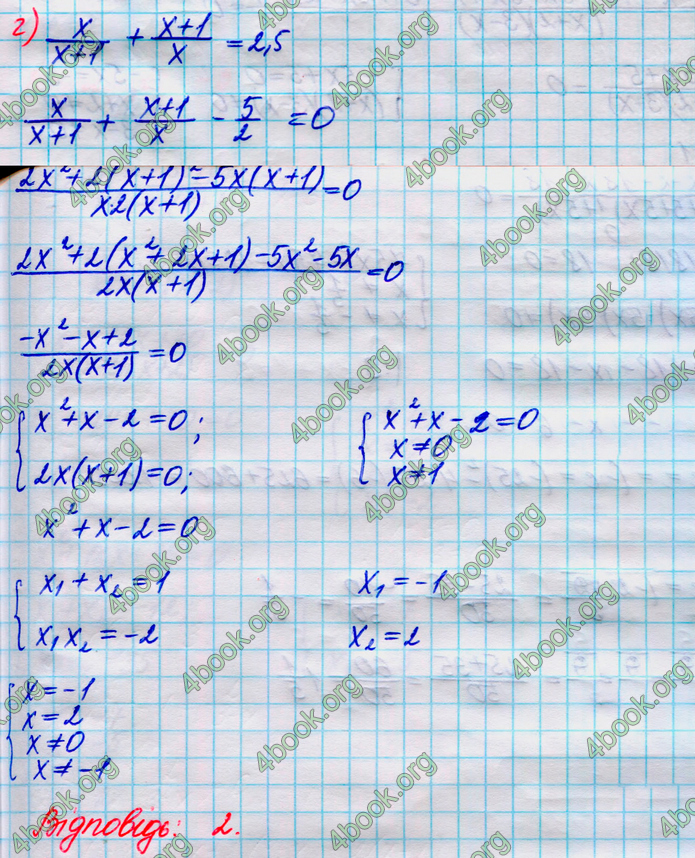 г) x/(x+1) + (x+1)/x = 2,5
x/(x+1) + (x+1)/x - 5/2 = 0
(2x²+2(x+1)²-5x(x+1))/(x2(x+1)) = 0
(2x²+2(x²+2x+1)-5x²-5x)/(2x(x+1)) = 0
(-x²-x+2)/(2x(x+1)) = 0
{ x²+x-2=0; { x²+x-2=0
x≠0
2x(x+1)=0; x≠1
x²+x-2=0
{ x₁+x₂=1 x₁=-1
x₁x₂=-2 x₂=2
{ x=-1
x=2
x≠0
x≠-1
Відповідь: 2.
4book.org